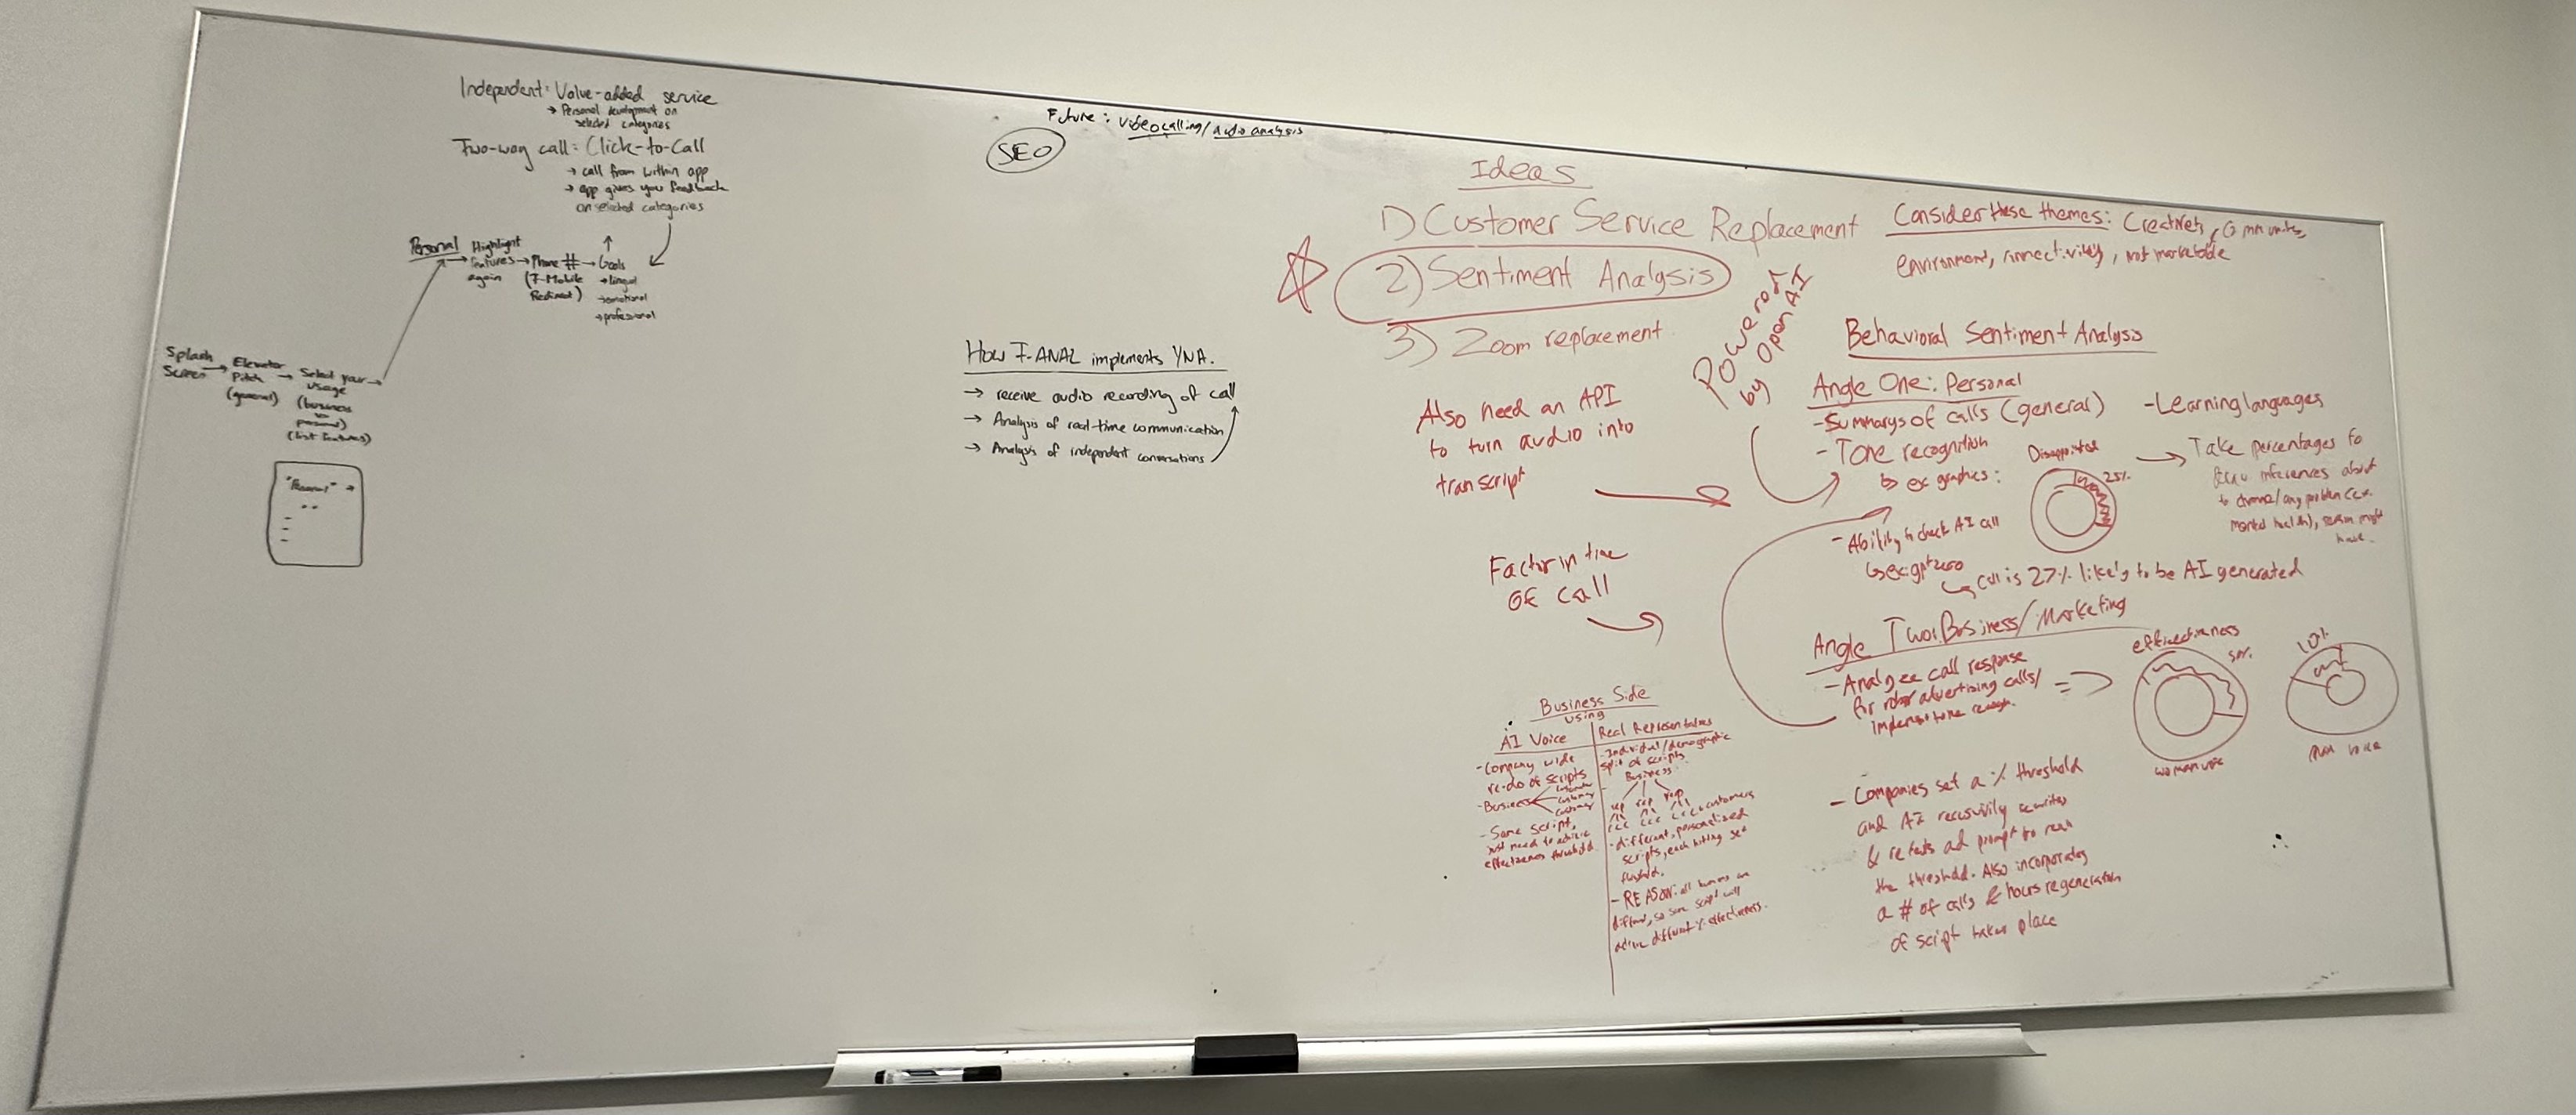 Independent: Value-added service
→ Personal development on
selected categories
Two-way call: Click-to-Call
→ call from within app
→ app gives you feedback
on selected categories
Personal → Highlight
features
again
→ Phone # → Goals
(T-Mobile
Redirect)
→ lingual
→ emotional
→ professional
Splash
Screen
→ Elevator
Pitch
(general)
→ Select your →
usage
(business
personal)
(list features)
"Personal" →
Future: videocalling/audio analysis
SEO
How T-ANAL implements YNA.
→ receive audio recording of call
→ Analysis of real-time communication
→ Analysis of independent conversations
Ideas
1) Customer Service Replacement
2) Sentiment Analysis
3) Zoom replacement
Consider these themes: Creativets, Communites,
environment, connectivity, not marketable
Powered
by OpenAI
Also need an API
to turn audio into
transcript
Factor in time
of call
Behavioral Sentiment Analysis
Angle One: Personal
- Summarys of calls (general)
- Learning languages
- Tone recognition
↳ ex graphics:
Disappointed
25%
→ Take percentages to
inferences about
any problem (ex.
mental health), might
have.
- Ability to check AI call
↳ ex gptzero
↳ Call is 27% likely to be AI generated
Angle Two: Business/Marketing
- Analyze call response
for robo advertising calls/
implement tone
effectiveness
50%
woman voice
10%
man voice
- Companies set a % threshold
and AI recursivily rewrites
& retests ad prompt to reach
the threshold. Also incorporates
a # of calls & hours regeneration
of script takes place
Business Side
using
AI Voice
- Company wide
re-do of scripts
- Business
customer
customer
customer
- Same script,
just need to achieve
effectiveness threshold.
Real Representatives
- Individual/demographic
split of scripts
Business
rep rep rep
ccc ccc ccc customers
- different, personalized
scripts, each hitting set
- REASON: all humans are
different, so same script will
achieve different % effectiveness.